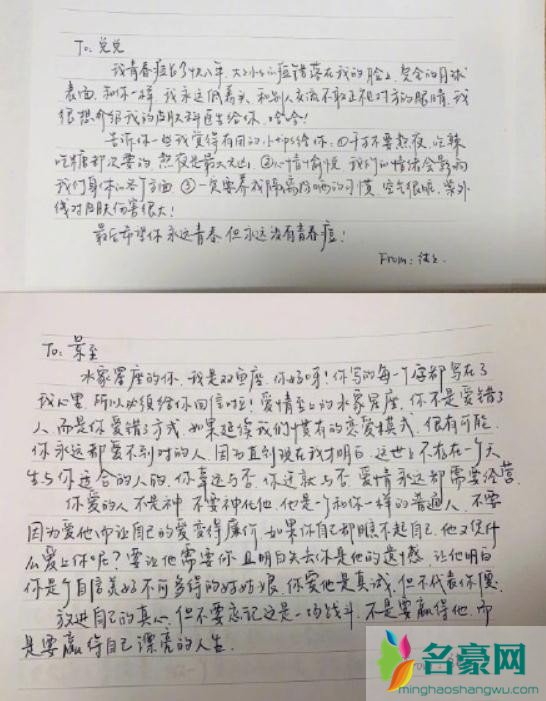 To: 兑兑
我青春痘长了快八年,大大小小的痘错落在我的脸上,复合的月球
表面,和你一样,我永远低着头,和别人交流不敢正视对方的眼睛,我
很想介绍我的皮肤科医生给你,哈哈!
告诉你一些我觉得有用的小tips给你:①千万不要熬夜,吃辣
吃糖都次要的,熬夜是最大元凶 ②心情愉悦,我们的情绪会影响
我们身体的各个方面 ③一定要养成隔离防晒的习惯,空气很脏,紫外
线对皮肤伤害很大!
最后希望你永远青春,但永远没有青春痘!
From:
To: 景至
水象星座的你,我是双鱼座,你好呀!你写的每一个字都写在了
我心里,所以必须给你回信啦!爱情至上的水象星座,你不是爱错了
人,而是你爱错了方式,如果延续我们惯有的恋爱模式,很有可能
你永远都爱不到对的人,因为直到现在我才明白,这世上不存在一个天
生与你适合的人的,你幸运与否,你迁就与否,爱情永远都需要经营.
你爱的人不是神,不要神化他,他是个和你一样的普通人,不要
因为爱他而让自己的爱变得廉价,如果你自己都瞧不起自己,他又凭什
么爱上你呢?要让他需要你且明白失去你是他的遗憾,让他明白
你是个自信美好不可多得的好姑娘,你爱他是真诚,但不代表你
放进自己的真心,但不要忘记这是一场战斗,不是要赢得他,而
是要赢得自己漂亮的人生.
名豪网
minghaoshangwu.com